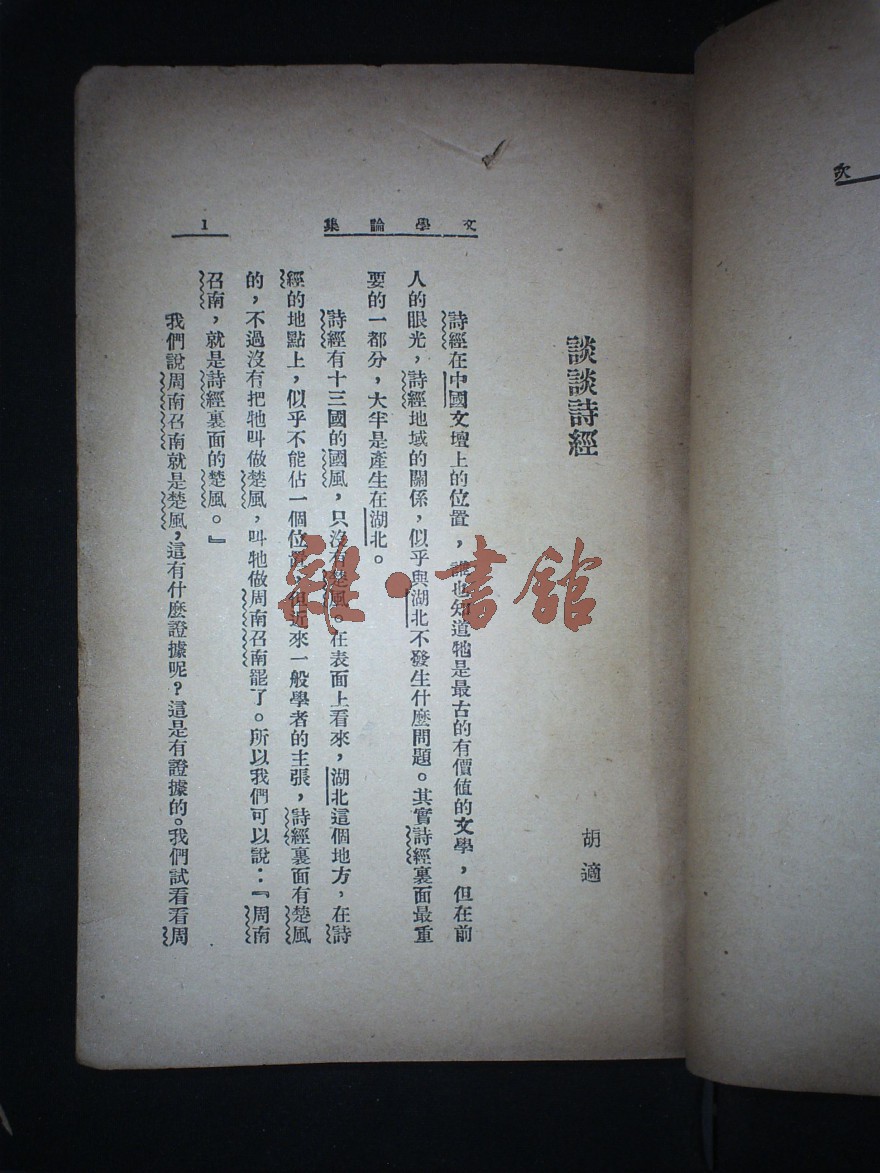 次
文學論集
1
談談詩經
胡適
詩經在中國文壇上的位置，誰也知道牠是最古的有價值的文學，但在前
人的眼光，詩經地域的關係，似乎與湖北不發生什麼問題。其實詩經裏面最重
要的一都分，大半是產生在湖北。
詩經有十三國的國風，只沒有楚風。在表面上看來，湖北這個地方，在詩
經的地點上，似乎不能佔一個位置，但近來一般學者的主張，詩經裏面有楚風
的，不過沒有把牠叫做楚風，叫牠做周南召南罷了。所以我們可以說：『周南
召南，就是詩經裏面的楚風。』
我們說周南召南就是楚風，這有什麼證據呢？這是有證據的。我們試看看周
雜·書館